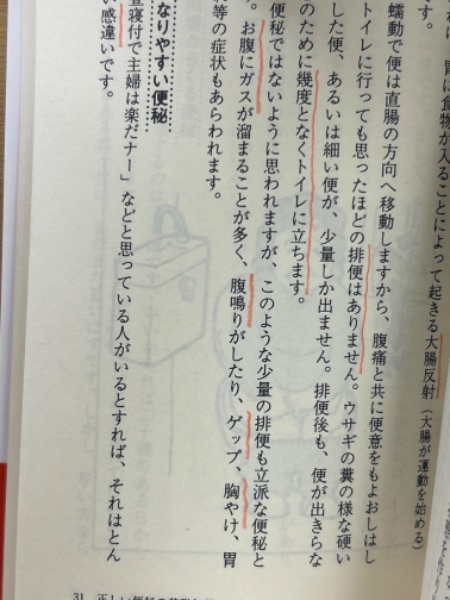 胃に食物が入ることによって起きる大腸反射（大腸が運動を始める）
です。
蠕動で便は直腸の方向へ移動しますから、腹痛と共に便意をもよおしはし
トイレに行っても思ったほどの排便はありません。ウサギの糞の様な硬い
した便、あるいは細い便が、少量しか出ません。排便後も、便が出きらな
のために幾度となくトイレに立ちます。
便秘ではないように思われますが、このような少量の排便も立派な便秘と
。お腹にガスが溜まることが多く、腹鳴りがしたり、ゲップ、胸やけ、胃
等の症状もあらわれます。
なりやすい便秘
昼寝付で主婦は楽だナー」などと思っている人がいるとすれば、それはとん
い感違いです。
31